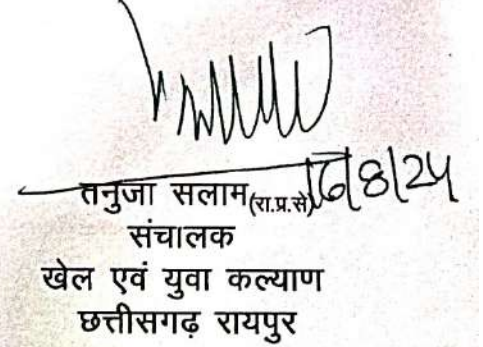 तनुजा सलाम (रा.प्र.से)
संचालक
खेल एवं युवा कल्याण
छत्तीसगढ़ रायपुर